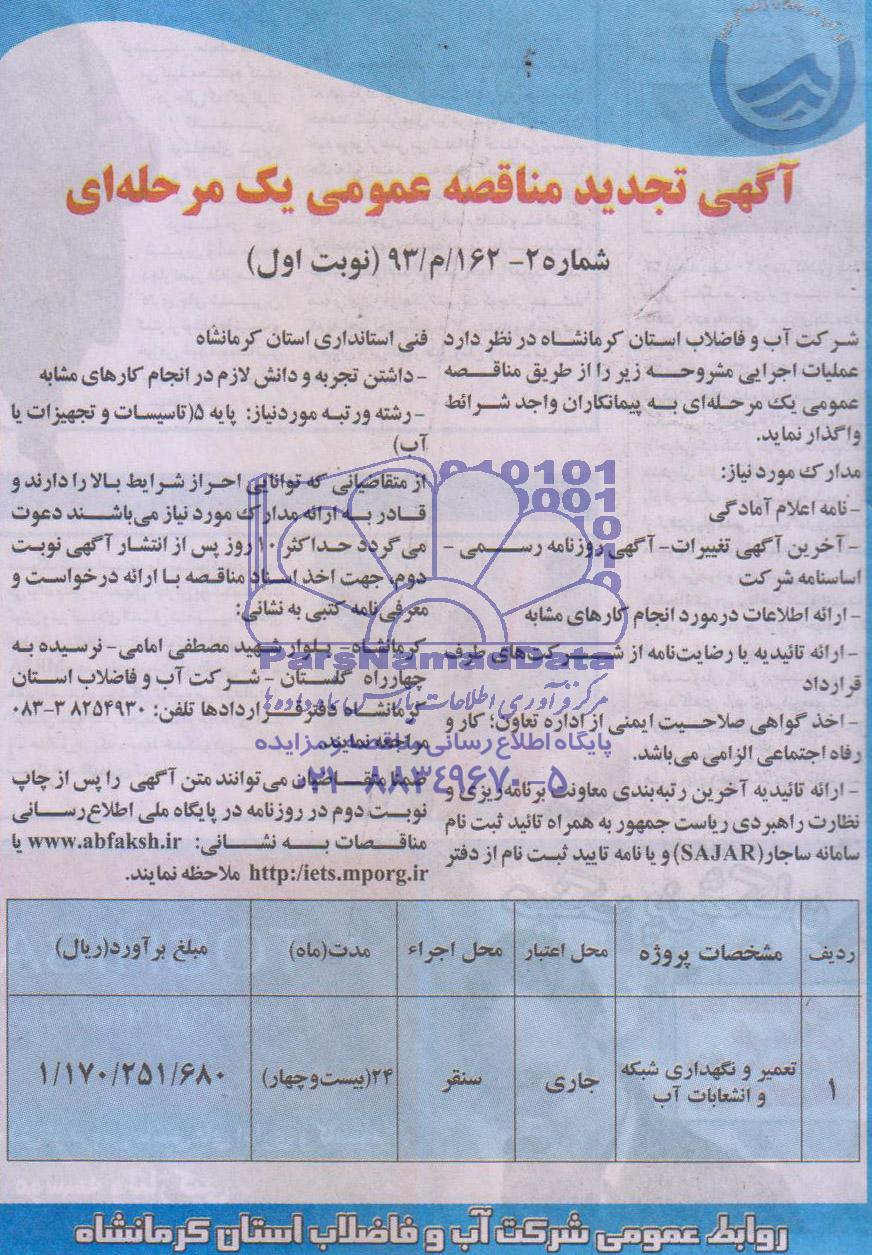 آگهی تجدید مناقصه عمومی یک مرحله‌ای
شماره ۲- ۱۶۲/م/۹۳ (نوبت اول)
شرکت آب و فاضلاب استان کرمانشاه در نظر دارد
عملیات اجرایی مشروحه زیر را از طریق مناقصه
عمومی یک مرحله‌ای به پیمانکاران واجد شرائط
واگذار نماید.
مدارک مورد نیاز:
-نامه اعلام آمادگی
-آخرین آگهی تغییرات- آگهی روزنامه رسمی -
اساسنامه شرکت
-ارائه اطلاعات درمورد انجام کارهای مشابه
-ارائه تائیدیه یا رضایت‌نامه از شرکت‌های طرف
قرارداد
-اخذ گواهی صلاحیت ایمنی از اداره تعاون؛ کار و
رفاه اجتماعی الزامی می‌باشد.
-ارائه تائیدیه آخرین رتبه‌بندی معاونت برنامه‌ریزی و
نظارت راهبردی ریاست جمهور به همراه تائید ثبت نام
سامانه ساجار(SAJAR) و یا نامه تایید ثبت نام از دفتر
فنی استانداری استان کرمانشاه
-داشتن تجربه و دانش لازم در انجام کارهای مشابه
-رشته ورتبه موردنیاز: پایه ۵(تاسیسات و تجهیزات یا
آب)
از متقاضیانی که توانایی احراز شرایط بالا را دارند و
قادر به ارائه مدارک مورد نیاز می‌باشند دعوت
می‌گردد حداکثر ۱۰ روز پس از انتشار آگهی نوبت
دوم، جهت اخذ اسناد مناقصه با ارائه درخواست و
معرفی‌نامه کتبی به نشانی:
کرمانشاه- بلوار شهید مصطفی امامی- نرسیده به
چهارراه گلستان - شرکت آب و فاضلاب استان
کرمانشاه دفترقراردادها تلفن: ۳۸۲۵۴۹۳۰-۰۸۳
مراجعه نمایند.
ضمنا متقاضیان می‌توانند متن آگهی را پس از چاپ
نوبت دوم در روزنامه در پایگاه ملی اطلاع‌رسانی
مناقصات به نشانی: www.abfaksh.ir یا
http:/iets.mporg.ir ملاحظه نمایند.
ParsNamadData
مرکز فرآوری اطلاعات پارس نماد داده‌ها
پایگاه اطلاع رسانی مناقصه و مزایده
۰۲۱-۸۸۳۴۹۶۷۰-۵
ردیف مشخصات پروژه محل اعتبار محل اجراء مدت(ماه) مبلغ برآورد(ریال)
۱ تعمیر و نگهداری شبکه و انشعابات آب جاری سنقر ۲۴(بیست‌و‌چهار) ۱/۱۷۰/۲۵۱/۶۸۰
روابط عمومی شرکت آب و فاضلاب استان کرمانشاه